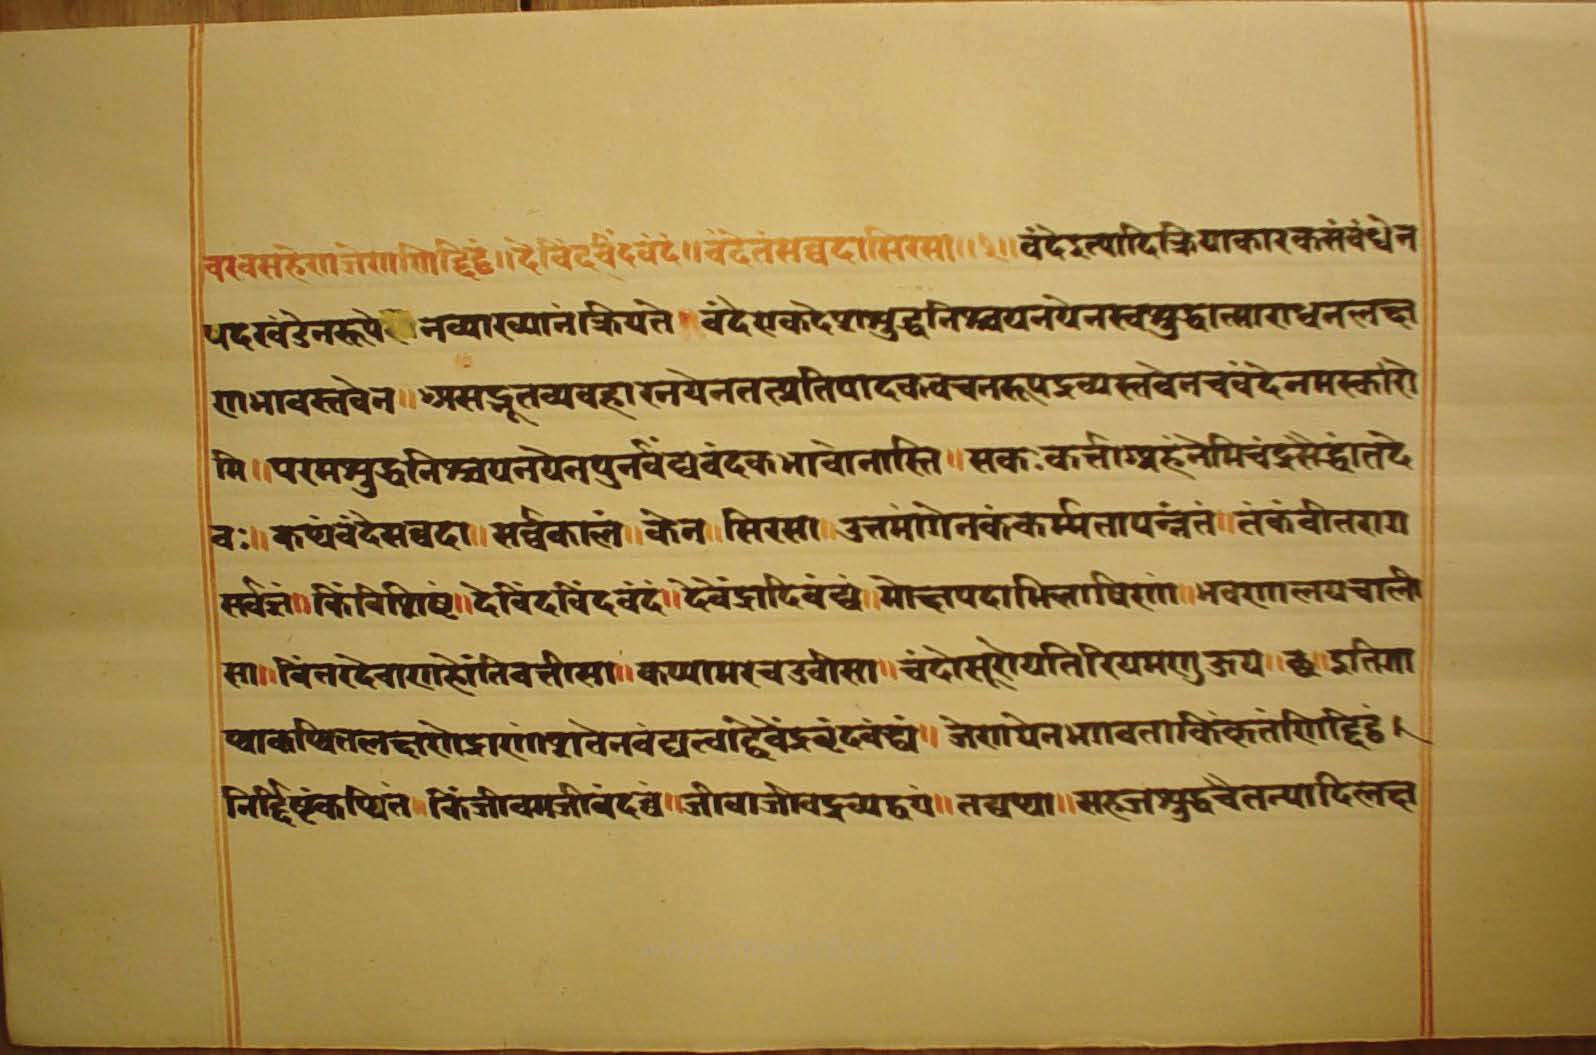 वरवसहेणजेणणिद्दिट्ठं॥देविंदविंदवंदं॥वंदेतंसव्वदासिरसा॥१॥वंदेइत्यादिक्रियाकारकसंबंधेन
पदखंडेनरूपे नव्याख्यानंक्रियते॥वंदेएकदेशशुद्धनिश्चयनयेनस्वशुद्धात्माराधनलक्ष
णभावस्तवेन॥असद्भूतव्यवहारनयेनतत्प्रतिपादकवचनरूपद्रव्यस्तवेनचवंदेनमस्करो
मि॥परमशुद्धनिश्चयनयेनपुनर्वंद्यवंदकभावोनास्ति॥सकःकर्त्ताअहंनेमिचंद्रसैद्धांतदे
वः॥कथंवंदेसव्वदा॥सर्वकालं॥केन॥सिरसा॥उत्तमांगेनकंकर्म्मतापन्नंतं॥तंकंवीतराग
सर्वज्ञं॥किंविशिष्टं॥देविंदविंदवंदं॥देवेंद्रादिवंद्यं॥मोक्षपदाभिलाषिणां॥भवणालयचाली
सा॥विंतरदेवाणहोंतिबत्तीसा॥कप्पामरचउवीसा॥चंदोसूरोयतिरियमणुऊय॥छ॥इतिगा
थाकथितलक्षणेंद्राणांशतेनवंद्यत्वाद्देवेंद्रवृंदवंद्यं॥जेणयेनभगवताकिंकृतंणिद्दिट्ठं।
निर्द्दिष्टंकथितं॥किंजीवमजीवंदव्वं॥जीवाजीवद्रव्यद्वयं॥तद्यथा॥सहजशुद्धचैतन्यादिलक्ष